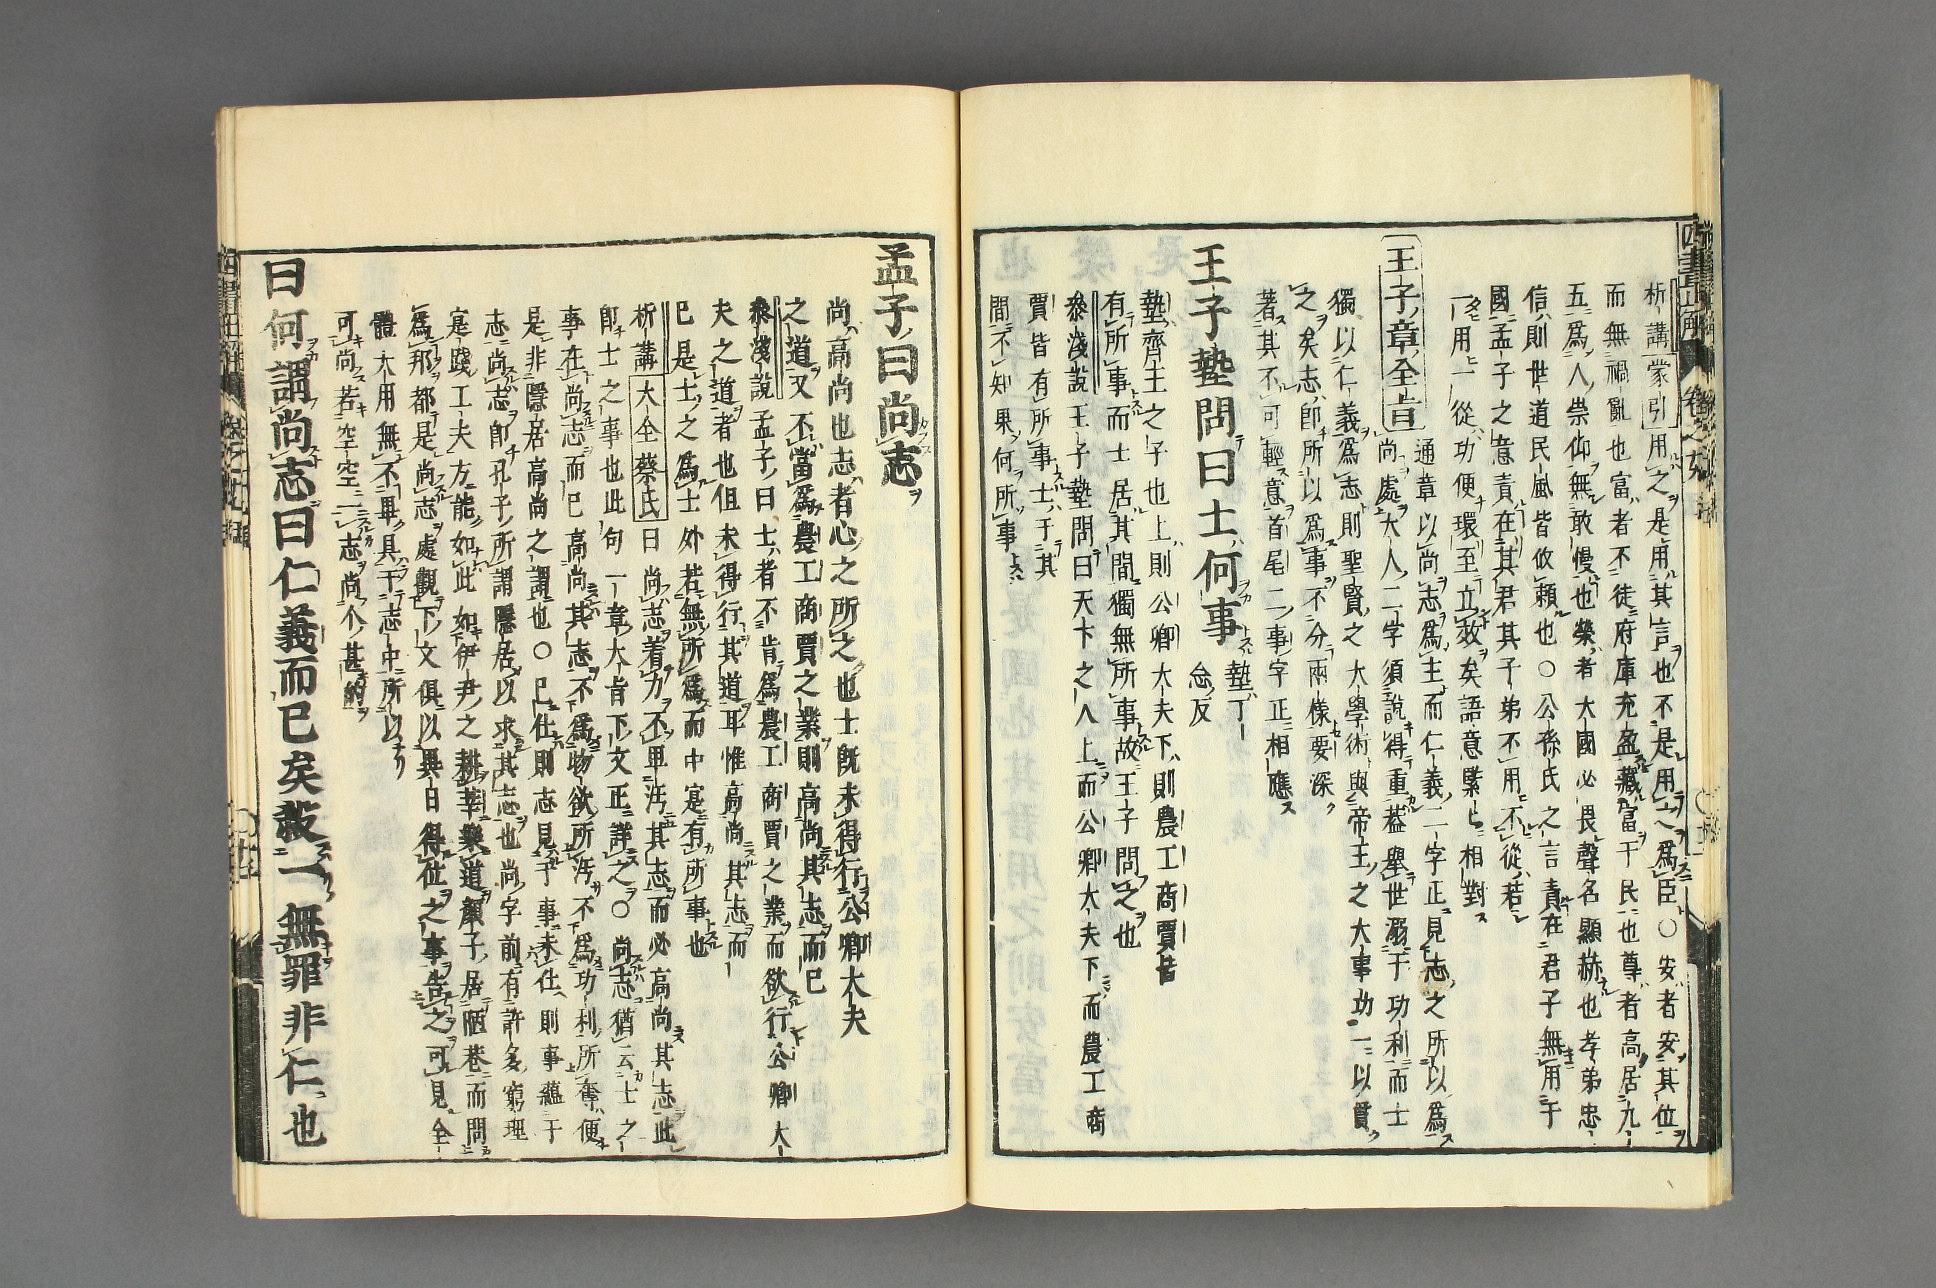 析講蒙引用之是用其言也不是用之爲臣○安者安其位
而無禍亂也富者不徒府庫充盈藏富于民也尊者高居九
五爲人崇仰無敢慢也榮者大國必畏聲名顯赫也孝弟忠
信則世道民風皆攸賴也○公孫氏之言責在君子無用于
國孟子之意責在其君其子弟不用不從若
一用一從功便環至立效矣語意緊相對
王子章全旨
通章以尚志爲主而仁義二字正見志之所以爲
尚處大人二字須說得重葢舉世溺于功利而士
獨以仁義爲志則聖賢之大學術與帝王之大事功一以貫
之矣志即所以爲事不分兩樣要深
著其不可輕意首尾二事字正相應
王子墊問曰士何事
墊丁念反
墊齊王之子也上則公卿大夫下則農工商賈皆
有所事而士居其間獨無所事故王子問之也
叅淺說王子墊問曰天下之人上而公卿大夫下而農工商
賈皆有所事士于其
間不知果何所事
孟子曰尚志
尚高尚也志者心之所之也士旣未得行公卿大夫
之道又不當爲農工商賈之業則高尚其志而已
叅淺說孟子曰士者不肯爲農工商賈之業而欲行公卿大
夫之道者也但未得行其道耳惟高尚其志而
已是士之爲士外若無所爲而中寔有所事也
析講大全蔡氏曰尚志着力不卑汚其志而必高尚其志此
即士之事也此句一章大旨下文正詳之○尚志猶云士之
事在尚志而已高尚其志不爲物欲所汚不爲功利所奪便
是非隱居高尚之謂也○已仕則志見于事未仕則事蘊于
志尚志即孔子所謂隱居以求其志也尚字前有許多窮理
寔踐工夫方能如此如伊尹之耕莘樂道顏子居陋巷而問
爲邦都是尚志處觀下文俱以異日得位之事告之可見全
體大用無不畢具于志中所以
可尚若空空一志尚個甚的
曰何謂尚志曰仁義而已矣殺一無罪非仁也